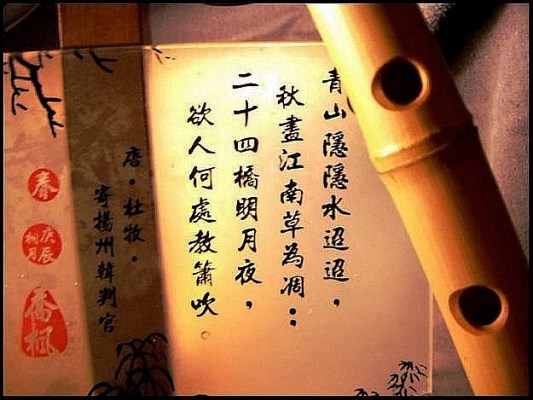 青山隱隱水迢迢，
秋盡江南草為凋；
二十四橋明月夜，
欲人何處教簫吹。
唐・杜牧・
寄揚州韓判官
春
庚辰
桐月
喬楓